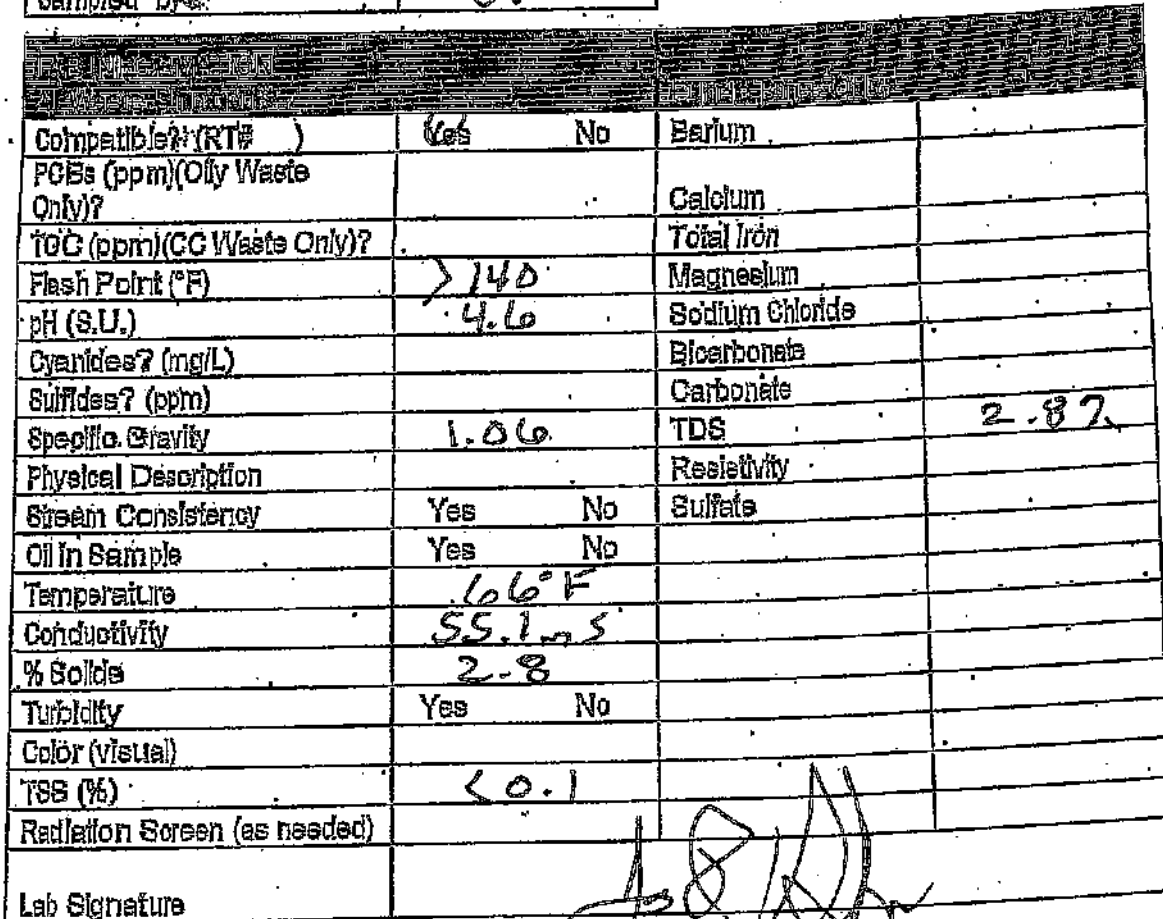 Sampled by
Compatible? (RT# ) Yes No Barium
PCBs (ppm)(Oily Waste
Only)? Calcium
TOC (ppm)(CC Waste Only)? Total Iron
Flash Point (°F) >140 Magnesium
pH (S.U.) 4.6 Sodium Chloride
Cyanides? (mg/L) Bicarbonate
Sulfides? (ppm) Carbonate
Specific Gravity 1.06 TDS 2.8%
Physical Description Resistivity
Stream Consistency Yes No Sulfate
Oil in Sample Yes No
Temperature 66°F
Conductivity 55.1 mS
% Solids 2.8
Turbidity Yes No
Color (visual)
TSS (%) <0.1
Radiation Screen (as needed)
Lab Signature